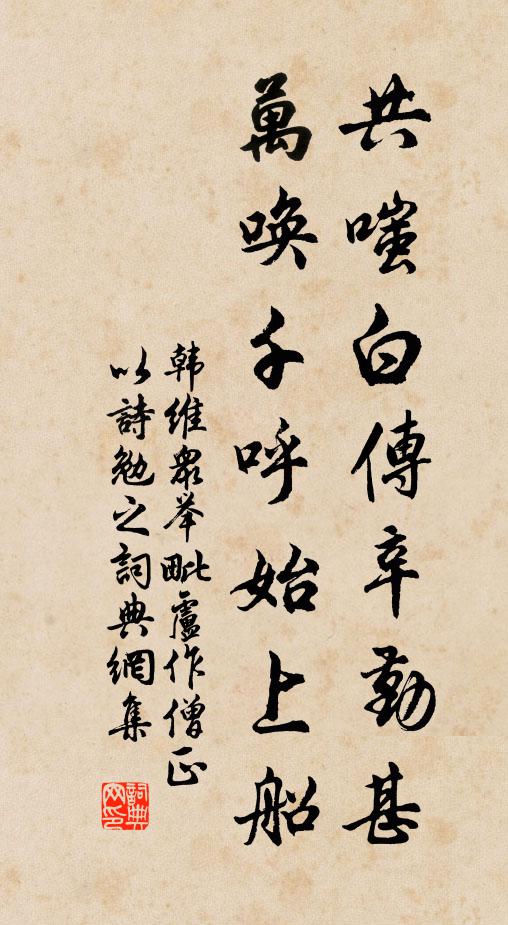 共嗤白傅辛勤甚
萬唤千呼始上船
韩維衆举毗盧作僧正
以詩勉之詞典網集
詞典网印